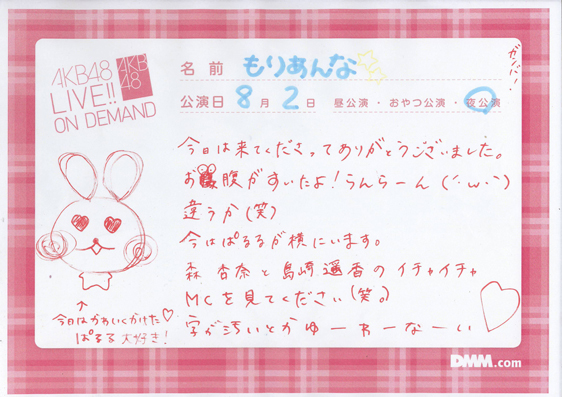 AKB48
LIVE!!
ON DEMAND
AKB
48
名前 もりあんな
公演日 8月2日 昼公演・おやつ公演・夜公演
今日は来てくださってありがとうございました。
お腹がすいたよ!らんらーん(´・ω・`)
違うか(笑)
今はぱるるが横にいます。
森杏奈と島崎遥香のイチャイチャ
MCを見てください(笑。)
字が汚いとかゆーわーなーい
↑
今日はかわいくかけた♡
ぱるる大好き!
DMM.com